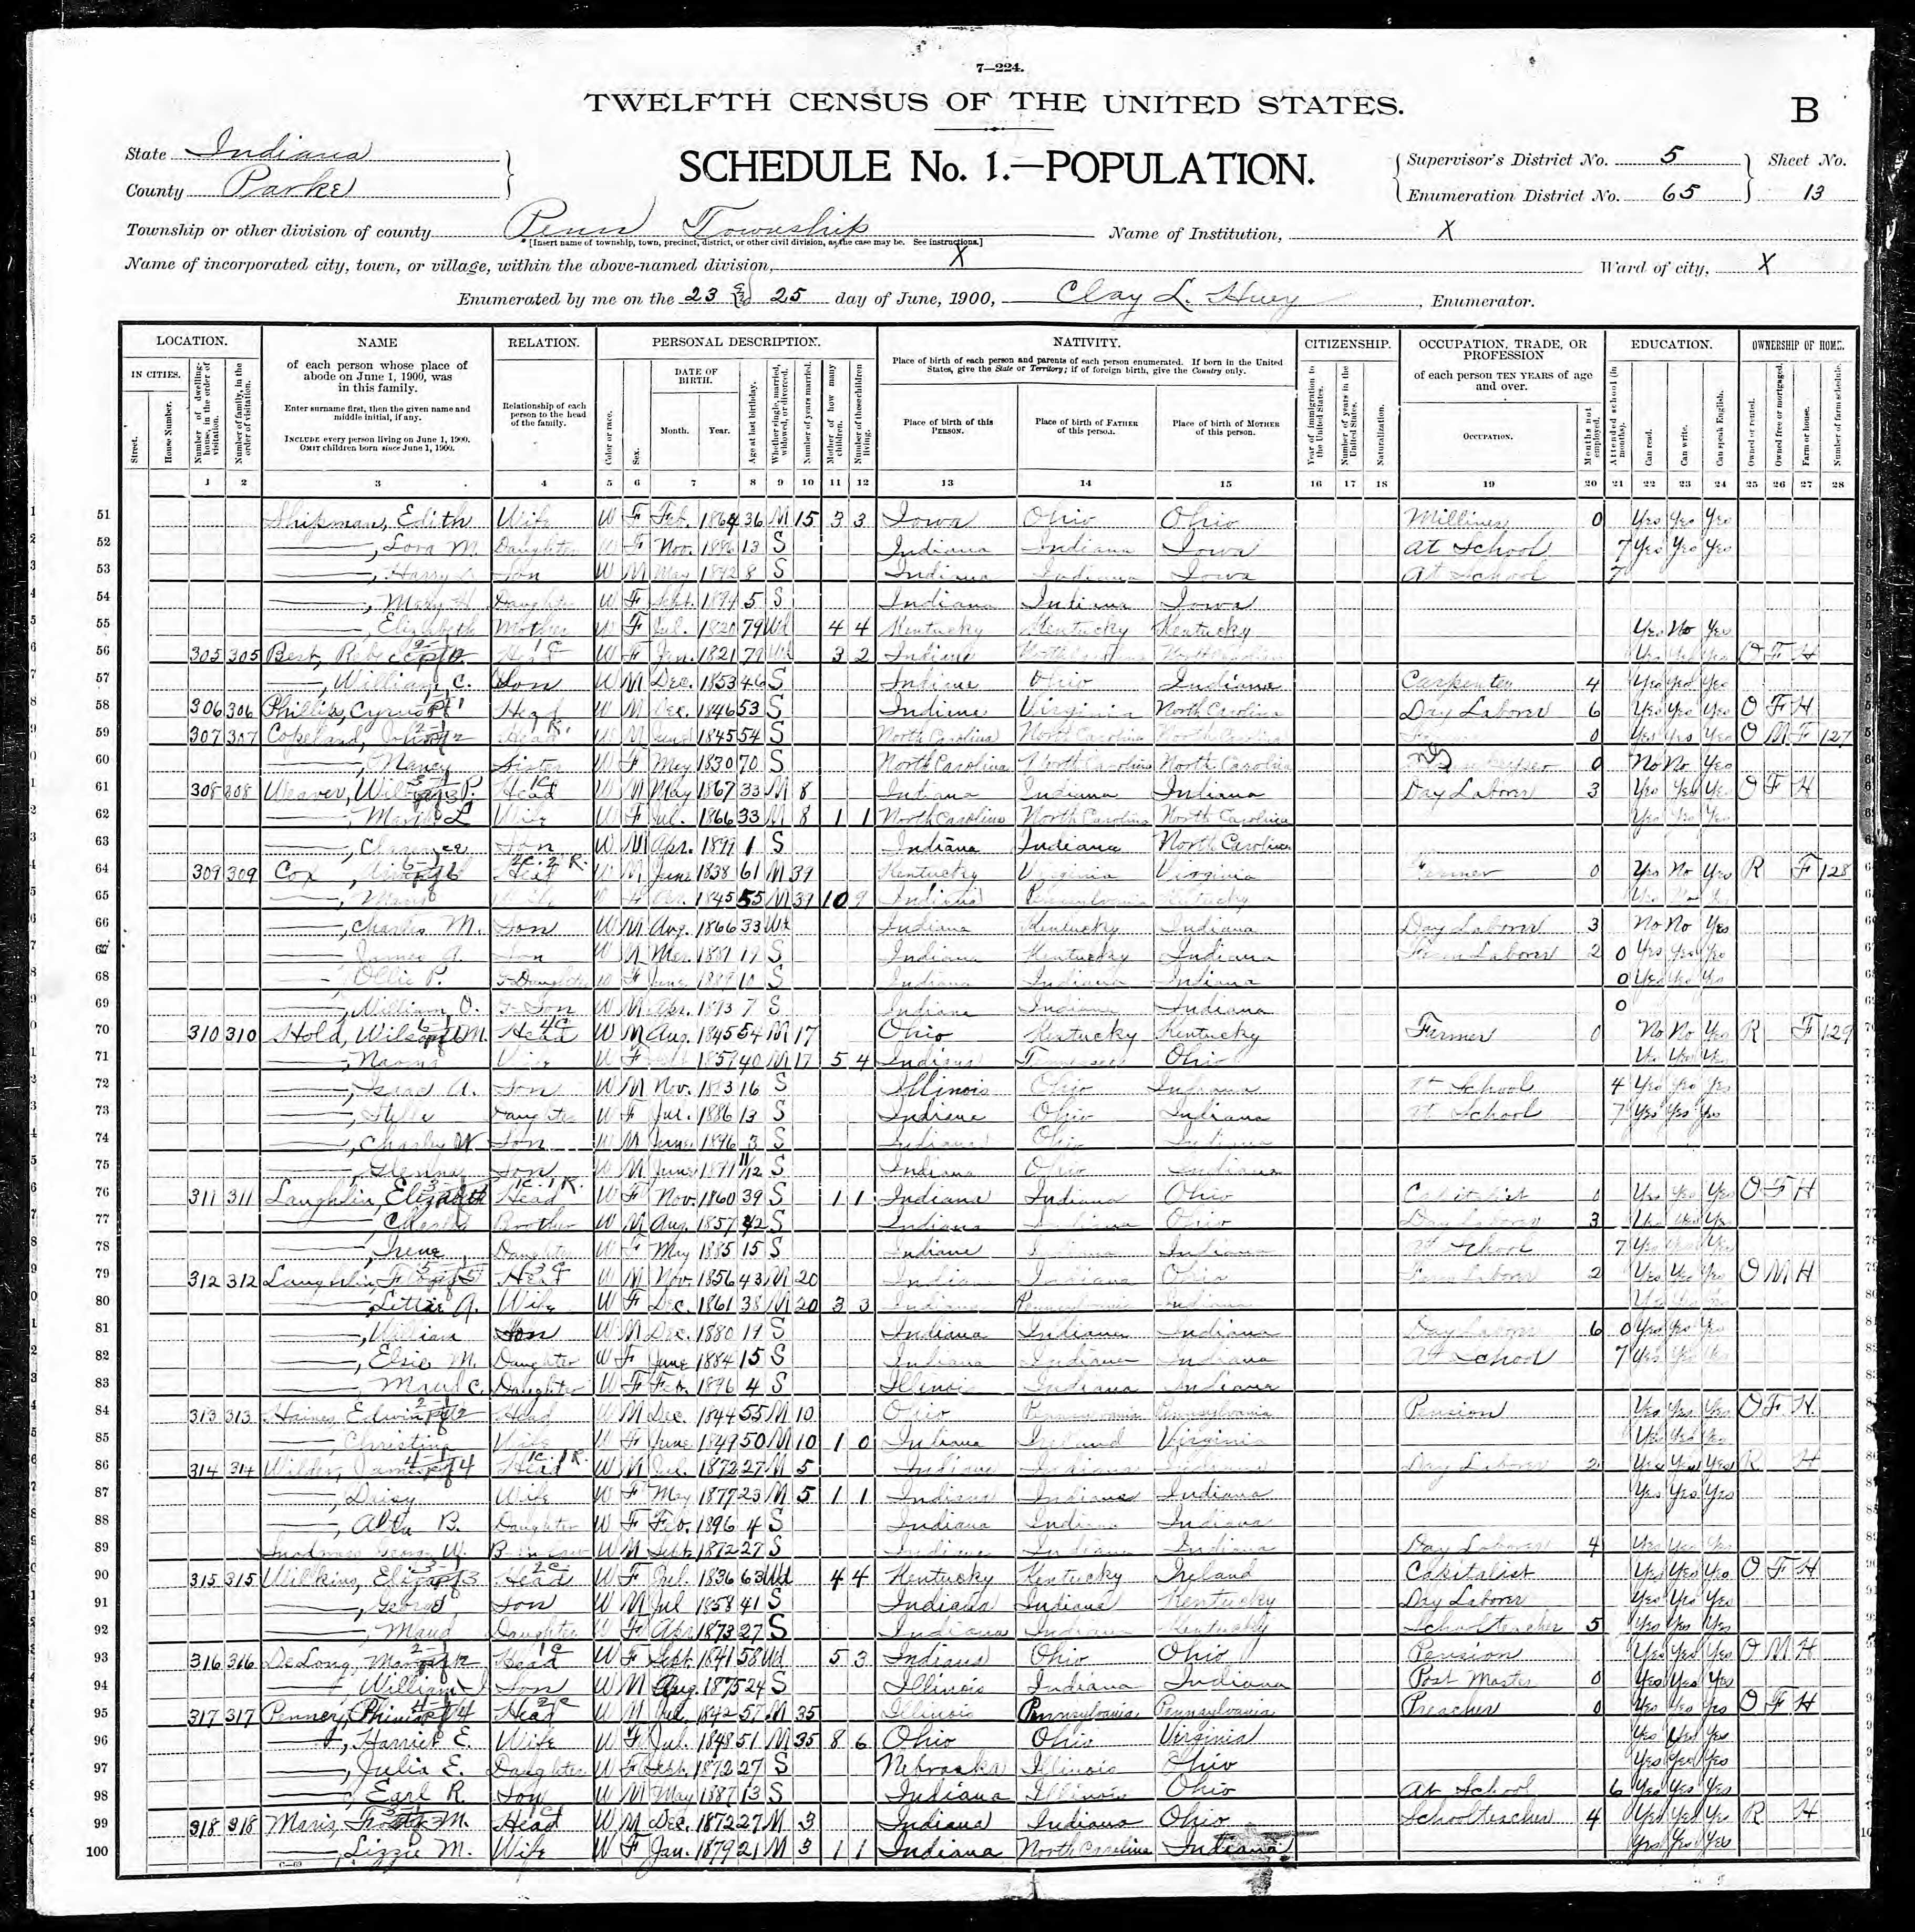 7—224.
TWELFTH CENSUS OF THE UNITED STATES.
B
State Indiana
County Parke
SCHEDULE No. 1.—POPULATION.
Supervisor's District No. 5 Sheet No.
Enumeration District No. 65 13
Township or other division of county Penn Township Name of Institution, X
[Insert name of township, town, precinct, district, or other civil division, as the case may be. See instructions.]
Name of incorporated city, town, or village, within the above-named division, X Ward of city, X
Enumerated by me on the 23 & 25 day of June, 1900, Clay L. Huey, Enumerator.
LOCATION. NAME RELATION. PERSONAL DESCRIPTION. NATIVITY. CITIZENSHIP. OCCUPATION, TRADE, OR PROFESSION EDUCATION. OWNERSHIP OF HOME.
IN CITIES. Street. House Number. Number of dwelling-house, in the order of visitation. Number of family, in the order of visitation.
of each person whose place of abode on June 1, 1900, was in this family.
Enter surname first, then the given name and middle initial, if any.
INCLUDE every person living on June 1, 1900. OMIT children born since June 1, 1900.
Relationship of each person to the head of the family.
Color or race. Sex. DATE OF BIRTH. Month. Year. Age at last birthday. Whether single, married, widowed, or divorced. Number of years married. Mother of how many children. Number of these children living.
Place of birth of each person and parents of each person enumerated. If born in the United States, give the State or Territory; if of foreign birth, give the Country only.
Place of birth of this PERSON. Place of birth of FATHER of this person. Place of birth of MOTHER of this person.
Year of immigration to the United States. Number of years in the United States. Naturalization.
of each person TEN YEARS of age and over. OCCUPATION. Months not employed.
Attended school (in months). Can read. Can write. Can speak English. Owned or rented. Owned free or mortgaged. Farm or house. Number of farm schedule.
1 2 3 4 5 6 7 8 9 10 11 12 13 14 15 16 17 18 19 20 21 22 23 24 25 26 27 28
51 Shipman, Edith Wife W F Feb. 1864 36 M 15 3 3 Iowa Ohio Ohio Milliner 0 Yes Yes Yes
52 , Lora M. Daughter W F Nov. 1886 13 S Indiana Indiana Iowa At School 7 Yes Yes Yes
53 , Harry Son W M May 1892 8 S Indiana Indiana Iowa At School 7
54 , Mary H. Daughter W F Sept. 1894 5 S Indiana Indiana Iowa
55 , Elizabeth Mother W F Jul. 1820 79 Wd 4 4 Kentucky Kentucky Kentucky Yes No Yes
56 305 305 Best, Head W F Jan. 1821 79 Wd 3 2 Indiana North Carolina Yes Yes Yes O F H
57 , William C. Son W M Dec. 1853 46 S Indiana Ohio Indiana Carpenter 4 Yes Yes Yes
58 306 306 Phillips, Cyrus Head W M Dec. 1846 53 S Indiana Virginia North Carolina Day Laborer 6 Yes Yes Yes O F H
59 307 307 Copeland, John Head W M June 1845 54 S North Carolina North Carolina North Carolina 0 Yes Yes Yes O M F 127
60 , Nancy Sister W F May 1830 70 S North Carolina North Carolina North Carolina 0 No No Yes
61 308 308 Weaver, Head W M May 1867 33 M 8 Indiana Indiana Indiana Day Laborer 3 Yes Yes Yes O F H
62 , L Wife W F Jul. 1866 33 M 8 1 1 North Carolina North Carolina North Carolina Yes Yes Yes
63 , Clarence Son W M Apr. 1899 1 S Indiana Indiana North Carolina
64 309 309 Cox, Head W M June 1838 61 M 39 Kentucky Virginia Virginia Farmer 0 Yes No Yes R F 128
65 , Mary W F 1845 55 M 39 10 9 Indiana Pennsylvania Kentucky Yes No Yes
66 , Charles M. Son W M Aug. 1866 33 Wd Indiana Kentucky Indiana Day Laborer 3 No No Yes
67 , James A. Son W M Mar. 1881 19 S Indiana Kentucky Indiana Farm Laborer 2 0 Yes Yes Yes
68 , Ollie P. G Daughter W F June 1889 10 S Indiana Indiana Indiana 0 Yes Yes Yes
69 , William O. G Son W M Apr. 1893 7 S Indiana Indiana Indiana 0
70 310 310 Head W M Aug. 1845 54 M 17 Ohio Kentucky Kentucky Farmer 0 No No Yes R F 129
71 , Naomi Wife W F 1859 40 M 17 5 4 Indiana Tennessee Ohio Yes Yes Yes
72 , Isaac A. Son W M Nov. 1883 16 S Illinois Ohio Indiana At School 4 Yes Yes Yes
73 , Daughter W F Jul. 1886 13 S Indiana Ohio Indiana At School 7 Yes Yes Yes
74 , Charley W Son W M June 1896 3 S Indiana Ohio Indiana
75 , Glenny Son W M June 1899 11/12 S Indiana Ohio Indiana
76 311 311 Laughlin, Elizabeth Head W F Nov. 1860 39 S 1 1 Indiana Indiana Ohio Capitalist 0 Yes Yes Yes O F H
77 , Charley Brother W M Aug. 1857 42 S Indiana Indiana Ohio Day Laborer 3 Yes Yes Yes
78 , Irene Daughter W F May 1885 15 S Indiana Indiana Indiana At School 7 Yes Yes Yes
79 312 312 Laughlin, Head W M Nov. 1856 43 M 20 Indiana Indiana Ohio Farm Laborer 2 Yes Yes Yes O M H
80 , Lettie A. Wife W F Dec. 1861 38 M 20 3 3 Indiana Pennsylvania Indiana Yes Yes Yes
81 , William Son W M Dec. 1880 19 S Indiana Indiana Indiana Day Laborer 6 0 Yes Yes Yes
82 , Elsie M. Daughter W F June 1884 15 S Indiana Indiana Indiana At School 7 Yes Yes Yes
83 , Maud C. Daughter W F Feb. 1896 4 S Illinois Indiana Indiana
84 313 313 Haines, Edwin Head W M Dec. 1844 55 M 10 Ohio Pennsylvania Pennsylvania Pension Yes Yes Yes O F H
85 , Christina Wife W F June 1849 50 M 10 1 0 Indiana Ireland Virginia Yes Yes Yes
86 314 314 Wilder, James Head W M Jul. 1872 27 M 5 Indiana Indiana Indiana Day Laborer 2 Yes Yes Yes R H
87 , Daisy Wife W F May 1877 23 M 5 1 1 Indiana Indiana Indiana Yes Yes Yes
88 , Alta B. Daughter W F Feb. 1896 4 S Indiana Indiana Indiana
89 George W. B-in-law W M Sept. 1872 27 S Indiana Indiana Indiana Day Laborer 4 Yes Yes Yes
90 315 315 Wilkins, Head W F Jul. 1836 63 Wd 4 4 Kentucky Kentucky Ireland Capitalist Yes Yes Yes O F H
91 , George Son W M Jul 1858 41 S Indiana Indiana Kentucky Day Laborer Yes Yes Yes
92 , Maud Daughter W F Apr 1873 27 S Indiana Indiana Kentucky Schoolteacher 5 Yes Yes Yes
93 316 316 DeLong, Head W F Sept. 1841 58 Wd 5 3 Indiana Ohio Ohio Pension Yes Yes Yes O M H
94 , William Son W M Aug. 1875 24 S Illinois Indiana Indiana Post Master 0 Yes Yes Yes
95 317 317 Head W M Jul. 1842 57 M 35 Illinois Pennsylvania Pennsylvania Preacher 0 Yes Yes Yes O F H
96 , Harriet E. Wife W F Jul. 1848 51 M 35 8 6 Ohio Ohio Virginia Yes Yes Yes
97 , Julia E. Daughter W F Sept. 1872 27 S Nebraska Illinois Ohio Yes Yes Yes
98 , Earl R. Son W M May 1887 13 S Indiana Illinois Ohio At School 6 Yes Yes Yes
99 318 318 Maris, M. Head W M Dec. 1872 27 M 3 Indiana Indiana Ohio Schoolteacher 4 Yes Yes Yes R H
100 , Lizzie M. Wife W F Jan. 1879 21 M 3 1 1 Indiana North Carolina Indiana Yes Yes Yes